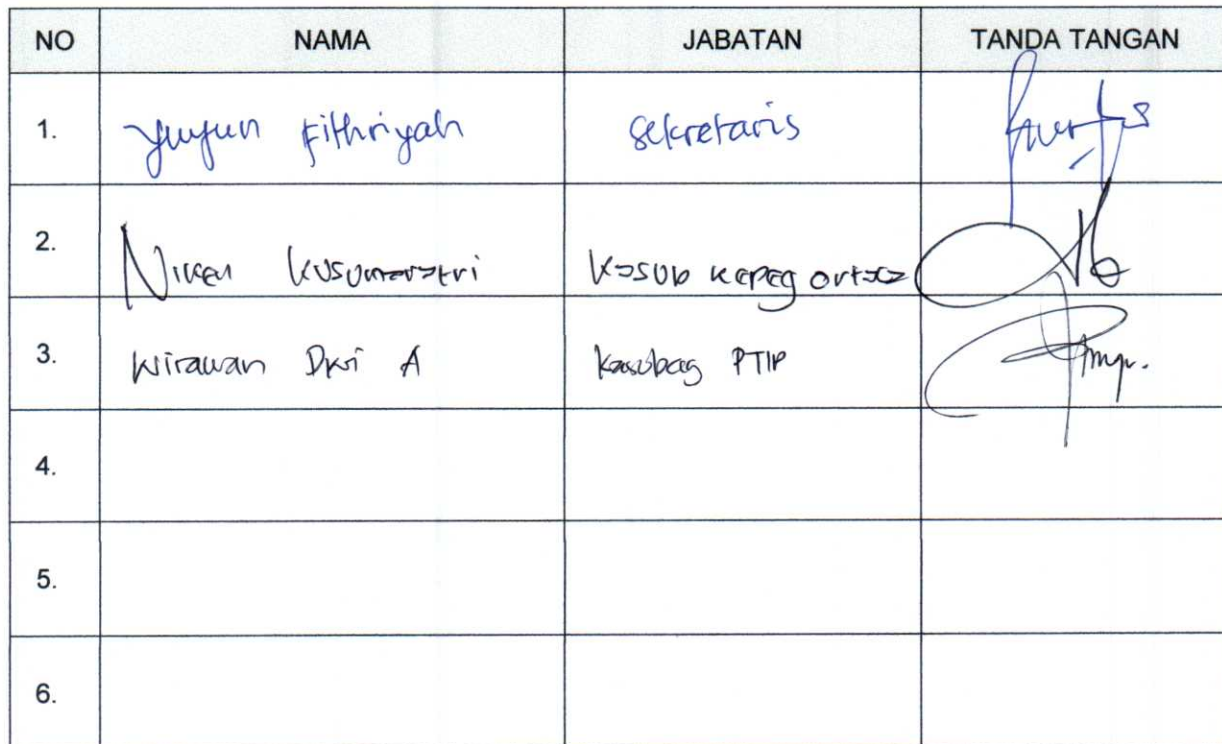 NO NAMA JABATAN TANDA TANGAN
1. Yuyun Fithriyah Sekretaris
2. Niken Kusumarastri Kasub kepeg ortala
3. Wirawan Dwi A Kasubag PTIP
4.
5.
6.